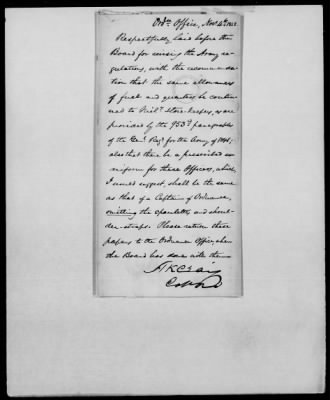 Ord. Office, Nov. 4th
Respectfully laid before the
Board for revising the Army re-
gulations, with the recommenda-
tion that the same allowances
of fuel and quarters be contin-
ued to Mily. Store-keepers, as are
provided by the 953d paragraph
of the Genl. Regs. for the Army of 1841;
also that there be a prescribed u-
niform for these Officers, which,
I would suggest, shall be the same
as that of a Captain of Ordnance,
omitting the epaulettes and shoul-
der-straps. Please return these
papers to the Ordnance Office, when
the Board has done with them
H K Craig
Col. Ord